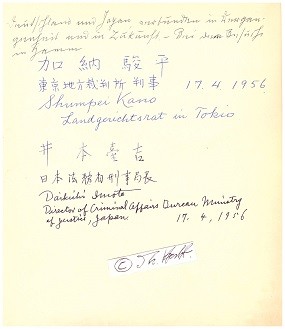 Deutschland und Japan verbunden in Vergan-
genheit und in Zukunft – Bei dem Besuche
in Hamm
加 納 駿 平
東京地方裁判所 判事 17.4.1956
Shumpei Kano
Landgerichtsrat in Tokio
井 本 臺 吉
日本法務省刑事局長
Daikichi Imoto
Director of Criminal Affairs Bureau Ministry
of Justice, Japan 17. 4, 1956
©